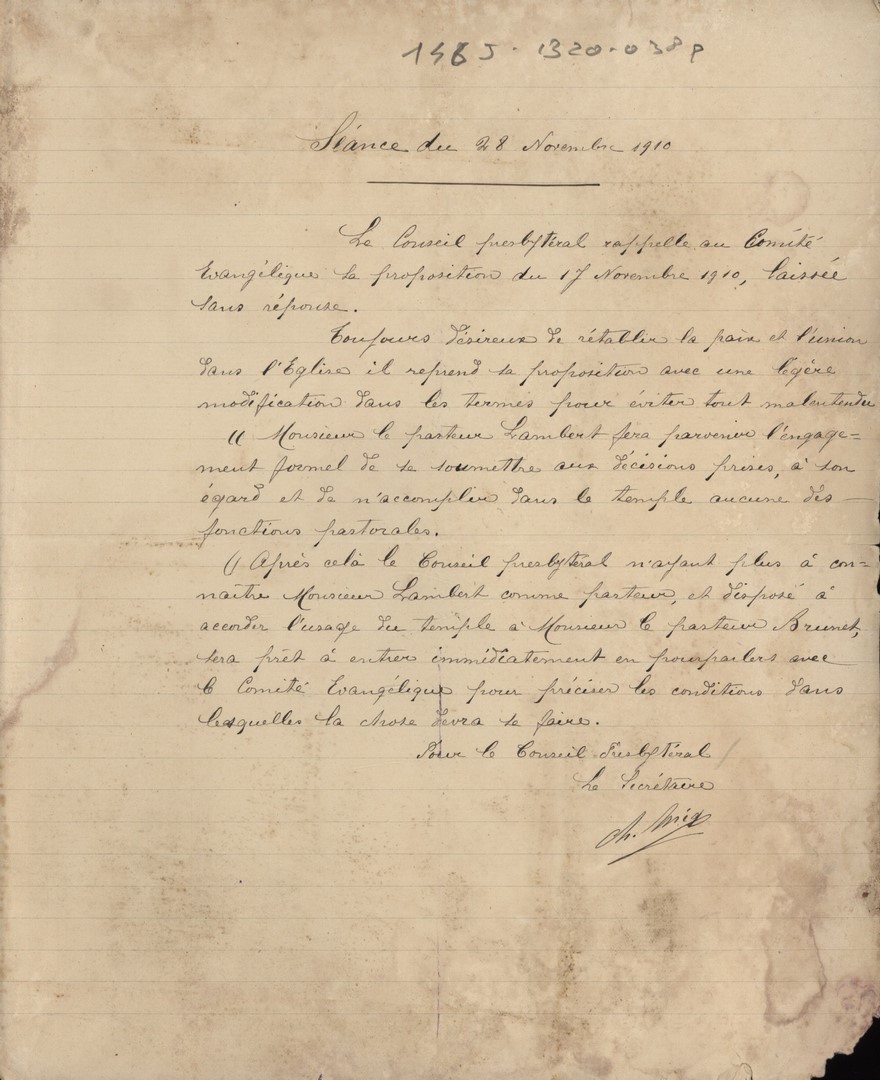 Séance du 28 Novembre 1910
Le Conseil presbytéral rappelle au Comité
Evangélique sa proposition du 17 Novembre 1910, laissée
sans réponse.
Toujours désireux de rétablir la paix et l'union
dans l'Eglise il reprend sa proposition avec une légère
modification dans les termes pour éviter tout malentendu
(( Monsieur le pasteur Lambert fera parvenir l'engage=
ment formel de se soumettre aux décisions prises, à son
égard et de n'accomplir dans le temple aucune des —
fonctions pastorales.
(( Après celà le Conseil presbytéral n'ayant plus à con=
naître Monsieur Lambert comme pasteur, et disposé à
accorder l'usage du temple à Monsieur le pasteur Brunet,
sera prêt à entrer immédiatement en pourparlers avec
le Comité Evangélique pour préciser les conditions dans
lesquelles la chose devra se faire.
Pour le Conseil Presbytéral
Le Secrétaire
Ch.